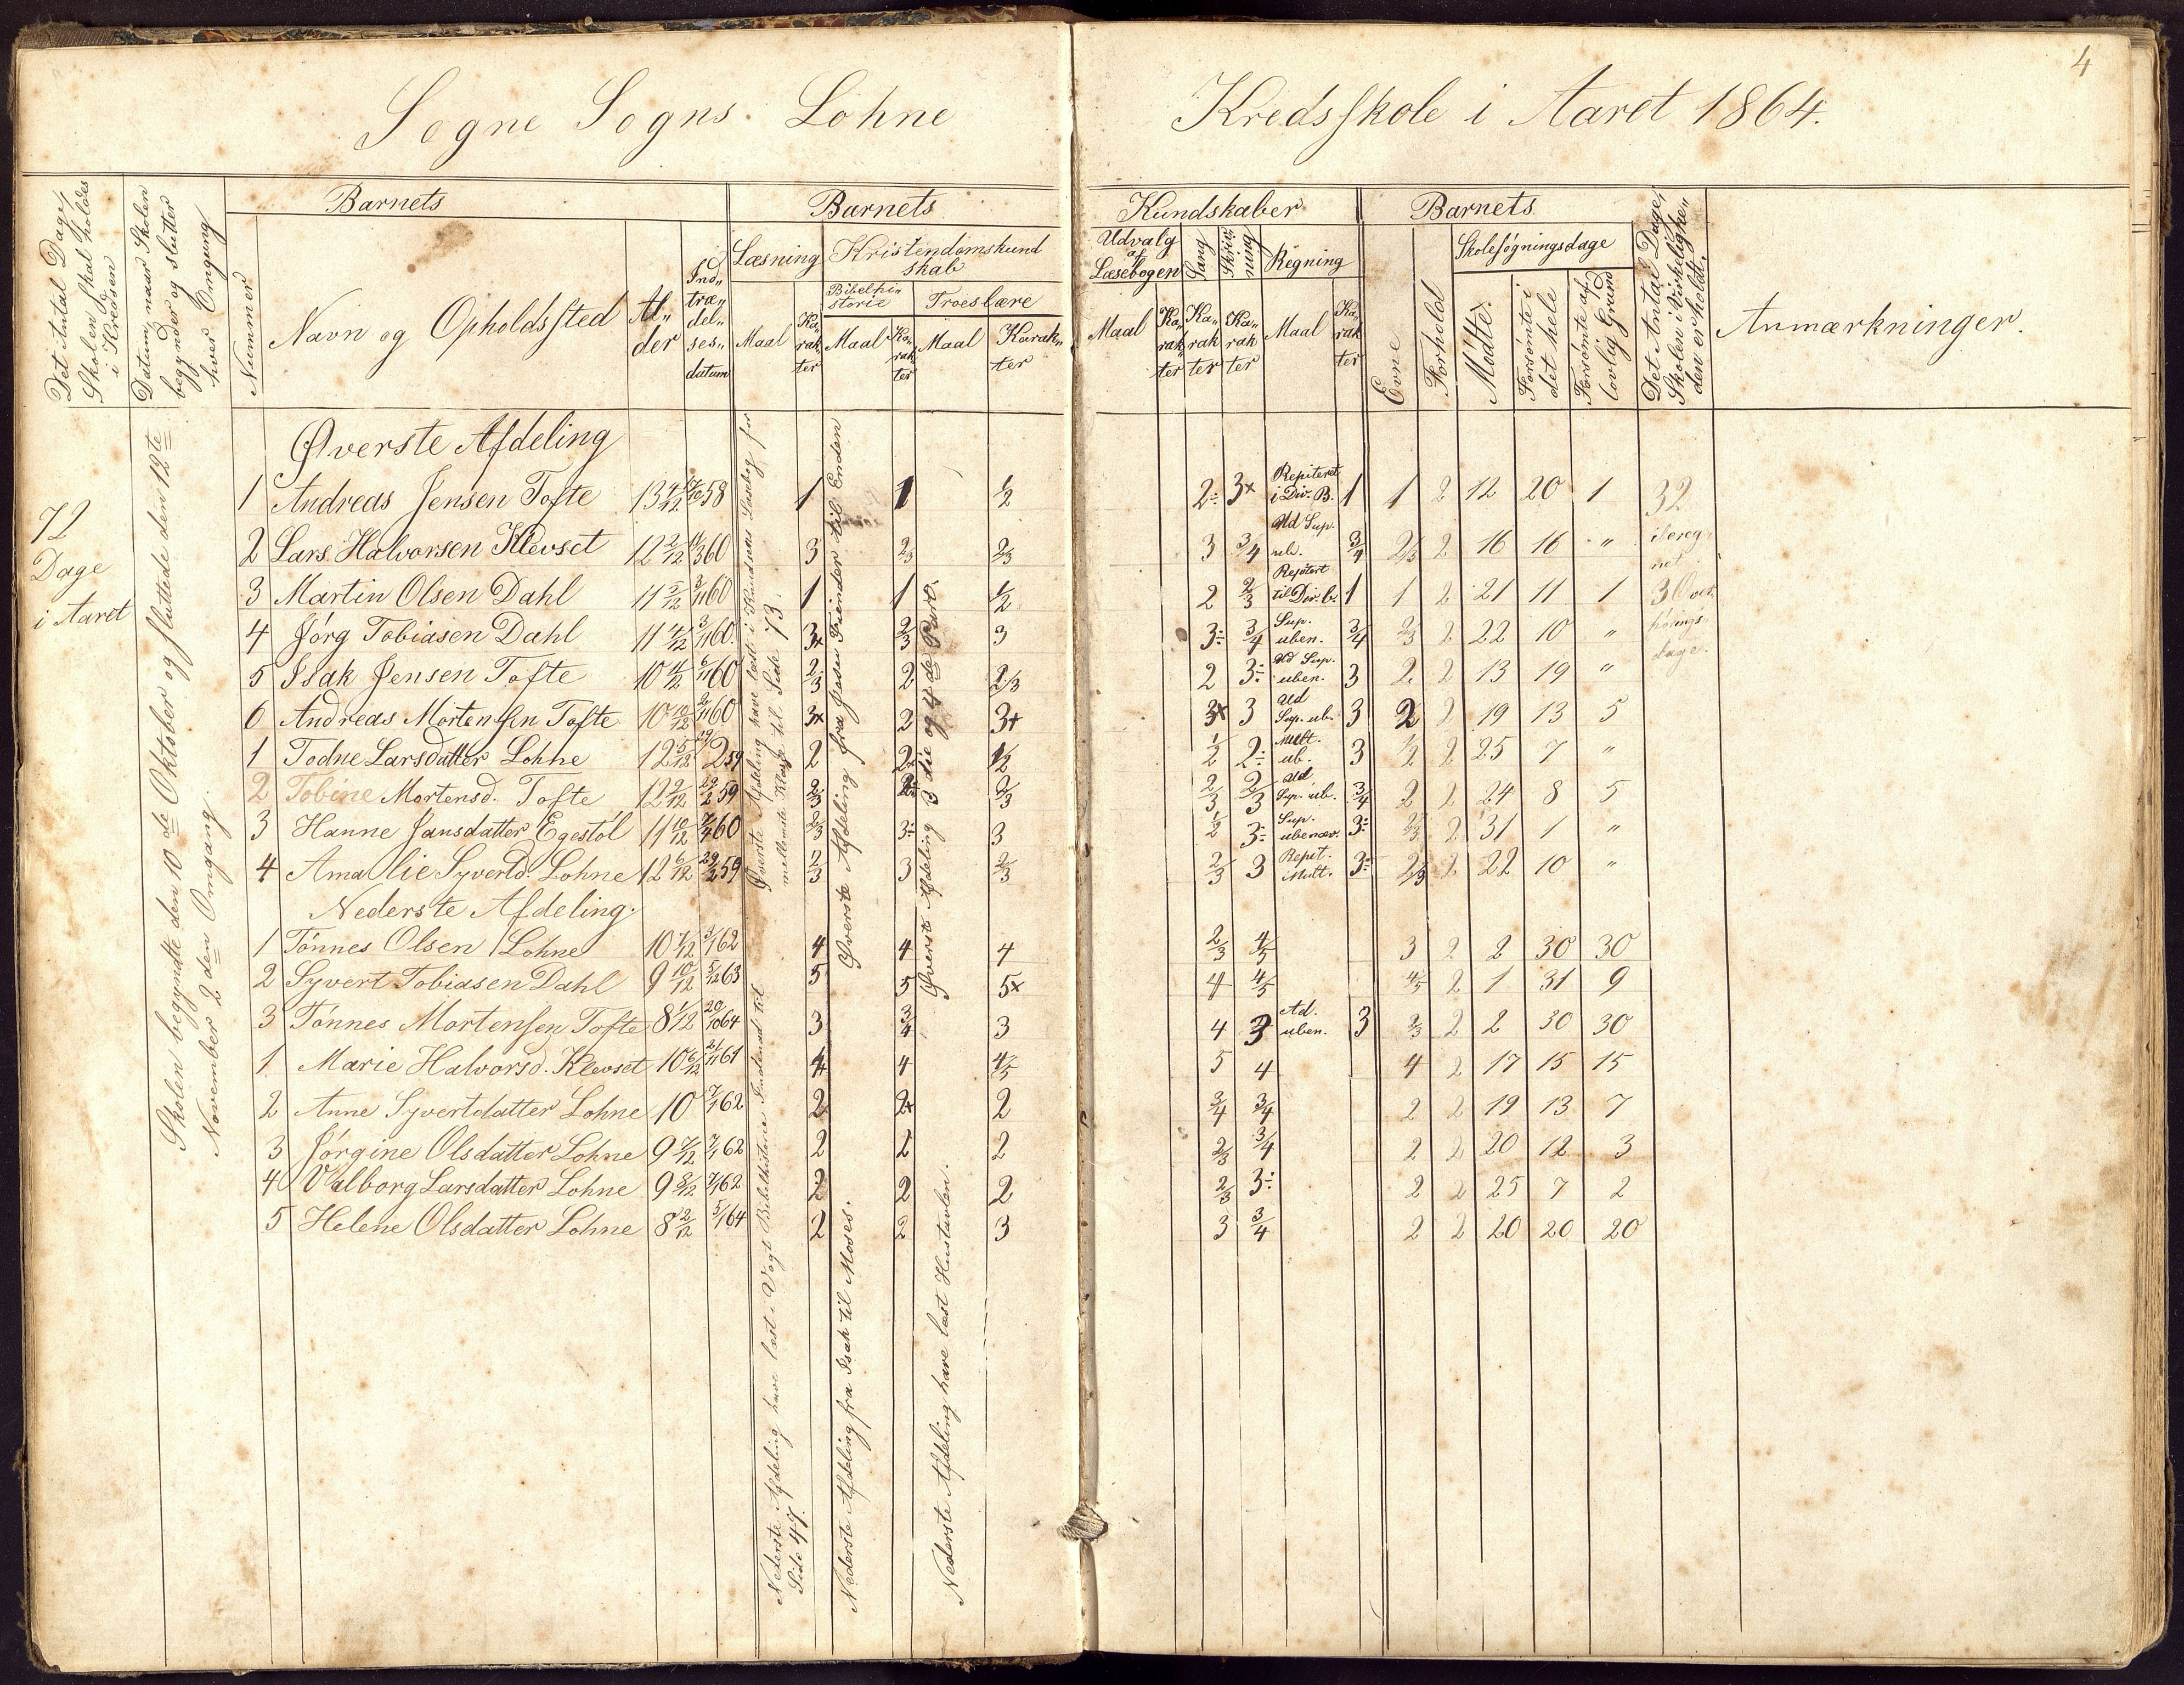 4
Sogne Sogns Lohne Kredsskole i Aaret 1864.
Det Antal Dage,
Skolen skal holdes
i Kredsen
Datum, naar Skolen
begynder og slutter
hver Omgang
Barnets
Nummer
Navn og Opholdssted
Al-
der
Ind-
træ-
del-
ses-
datum
Barnets
Læsning
Maal
Ka-
rak-
ter
Kristendomskund
skab
Bibelhi-
storie
Maal
Ka-
rak
ter
Troeslære
Maal
Karak-
ter
Kundskaber
Udvalg
af
Læsebogen
Maal
Ka-
rak-
ter
Sang
Ka-
rak
ter
Skriv-
ning
Ka-
rak
ter
Regning
Maal
Ka-
rak
ter
Barnets
Evne
Forhold
Skolesøgningsdage
Mødte.
Forsømte i
det hele
Forsømte af
lovlig Grund
Det Antal Dage,
Skolen i Virkelighe-
den er holdt.
Anmærkninger.
72
Dage
i Aaret
Skolen begyndte den 10de Oktober og sluttede den 12te
November 2den Omgang.
Øverste Afdeling have læst i Knudsens Læsebog for
mellemste Klasse til Side 73.
Øverste Afdeling fra Jesu Fiender til Enden
Øverste Afdeling 3die og 4de Part.
Nederste Afdeling have læst i Vogts Bibelhistorie Indtil
Side 47.
Nederste Afdeling fra Isak til Moses.
Nederste Afdeling have læst Hustavlen.
Øverste Afdeling
1 Andreas Jensen Tofte 13 4/12 58 1 1 1/2 2÷ 3x Repiteret i Div. B. 1 1 2 12 20 1 32
2 Lars Halvorsen Klevset 12 2/12 11/3 60 3 2/3 2/3 3 3/4 Ad Sup. ub. 3/4 2/3 2 16 16 " ibereg-
net
3 Martin Olsen Dahl 11 5/12 3/11 60 1 1 1/2 2 2/3 Repitert til Div. b. 1 1 2 21 11 1 3
4 Jørg Tobiasen Dahl 11 4/12 3/11 60. 3x 2/3 3 3÷ 3/4 Sup. uben. 3/4 2/3 2 22 10 " hørings-
dage.
5 Isak Jensen Tofte 10 11/12 6/11 60 2/3 2 2/3 2 3÷ Ad Sup. uben. 3 2 2 13 19 "
6 Andreas Mortensen Tofte 10 10/12 2/11 60 3x 2 3+ 3x 3 Ad Sup. ub. 3 2 2 19 13 5
1 Todne Larsdatter Lohne 12 5/12 19/2 59 2 2x 1/2 1/2 2÷ Mult. ub. 3 1/2 2 25 7 "
2 Tobine Mortensd. Tofte 12 9/12 29/2 59 2/3 2x 2/3 2/3 2/3 Ad Sup. ub. 3/4 2 2 24 8 5
3 Hanne Jansdatter Egestøl 11 10/12 7/4 60 2/3 3÷ 3 1/2 3÷ Sup. ubenæv. 3÷ 2/3 2 31 1 "
4 Amalie Syvertd. Lohne 12 6/12 29/2 59 2/3 3 2/3 2/3 3 Repit. Mult. 3÷ 2/3 2 22 10 "
Nederste Afdeling.
1 Tønnes Olsen Lohne 10 7/12 3/1 62 4 4 4 2/3 4/5 3 2 2 30 30
2 Syvert Tobiasen Dahl 9 10/12 5/12 63 5 5 5x 4 4/5 4/5 2 1 31 9
3 Tønnes Mortensen Tofte 8 1/12 20/10 64 3 3/4 3 4 3 Ad. uben. 3 2/3 2 2 30 30
1 Marie Halvorsd. Klevset 10 6/12 21/11 61 4 4 4/5 5 4 4 2 17 15 15
2 Anne Syvertdatter Lohne 10 7/1 62 2 2x 2 3/4 3/4 2 2 19 13 7
3 Jørgine Olsdatter Lohne 9 7/12 7/1 62 2 1 2 2/3 3/4 2 2 20 12 3
4 Valborg Larsdatter Lohne 9 8/12 7/1 62 2 2 2 2/3 3÷ 2 2 25 7 2
5 Helene Olsdatter Lohne 8 2/12 5/1 64 2 2 3 3 3/4 2 2 20 20 20